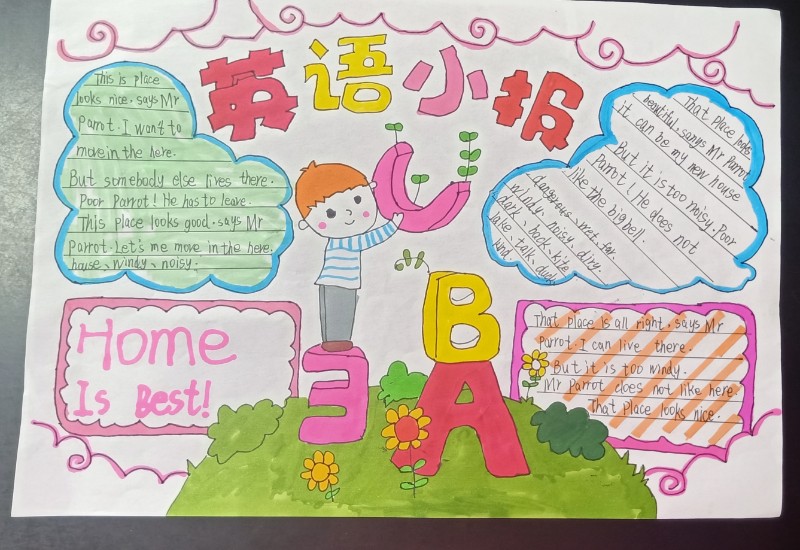 英语小报
This is place
looks nice. says Mr
Parrot. I want to
move in the here.
But somebody else lives there.
Poor Parrot! He has to leave.
This place looks good. says Mr
Parrot. Let's me move in the here.
house、windy、noisy.
That place looks
beautiful. says Mr Parrot
it can be my new house
But it is too noisy. Poor
Parrot! He does not
like the big bell.
dangerous、wet、far
windy、noisy、diry.
dark、back、kite
lake、talk、duck
wind.
C
B
3
A
Home
Is Best!
That place is all right. says Mr
Parrot. I can live there.
But it is too windy.
Mr Parrot does not like here.
That Place looks nice.